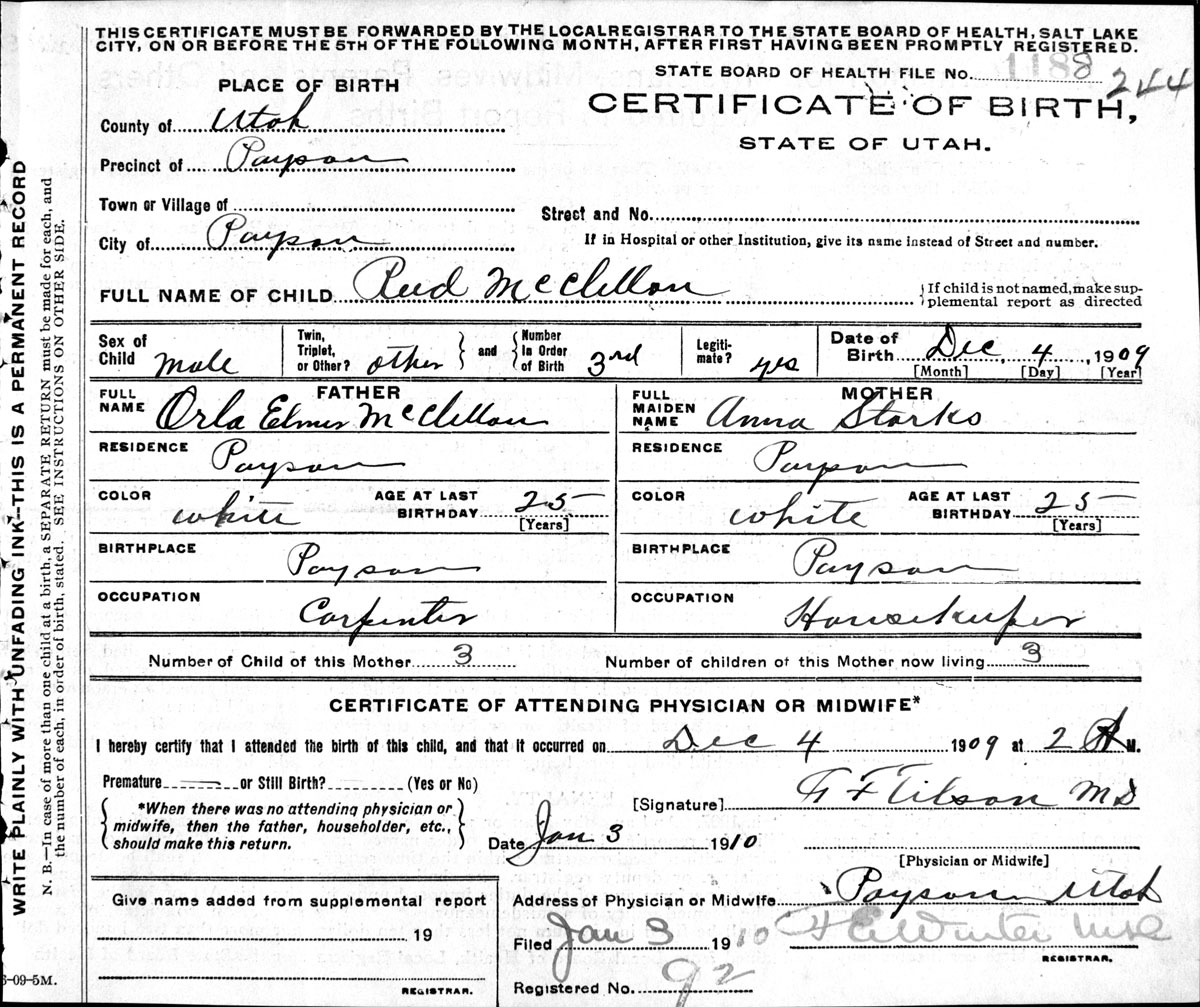 THIS CERTIFICATE MUST BE FORWARDED BY THE LOCAL REGISTRAR TO THE STATE BOARD OF HEALTH, SALT LAKE
CITY, ON OR BEFORE THE 5TH OF THE FOLLOWING MONTH, AFTER FIRST HAVING BEEN PROMPTLY REGISTERED.
STATE BOARD OF HEALTH FILE No. 1188 244
PLACE OF BIRTH
CERTIFICATE OF BIRTH,
STATE OF UTAH.
County of Utah
Precinct of Payson
Town or Village of
Street and No.
City of Payson
If in Hospital or other Institution, give its name instead of Street and number.
FULL NAME OF CHILD Reed McClellan
If child is not named, make sup-
plemental report as directed
Sex of Child Male
Twin, Triplet, or Other? other
and Number In Order of Birth 3rd
Legiti-mate? yes
Date of Birth Dec. 4, 1909
[Month] [Day] [Year]
FATHER
FULL NAME Orla Elmer McClellan
RESIDENCE Payson
COLOR white AGE AT LAST BIRTHDAY 25
[Years]
BIRTHPLACE Payson
OCCUPATION Carpenter
MOTHER
FULL MAIDEN NAME Anna Starks
RESIDENCE Payson
COLOR white AGE AT LAST BIRTHDAY 25
[Years]
BIRTHPLACE Payson
OCCUPATION Housekeeper
Number of Child of this Mother 3 Number of children of this Mother now living 3
CERTIFICATE OF ATTENDING PHYSICIAN OR MIDWIFE*
I hereby certify that I attended the birth of this child, and that it occurred on Dec 4 1909 at 2 A M.
Premature or Still Birth? (Yes or No)
*When there was no attending physician or
midwife, then the father, householder, etc.,
should make this return.
[Signature] Tilson MD
Date Jan 3 1910
[Physician or Midwife]
Give name added from supplemental report
19
REGISTRAR.
Address of Physician or Midwife Payson Utah
Filed Jan 3 1910
REGISTRAR.
Registered No. 92
WRITE PLAINLY WITH UNFADING INK--THIS IS A PERMANENT RECORD
N. B.—In case of more than one child at a birth, a SEPARATE RETURN must be made for each, and
the number of each, in order of birth, stated. SEE INSTRUCTIONS ON OTHER SIDE.
6-09-5M.